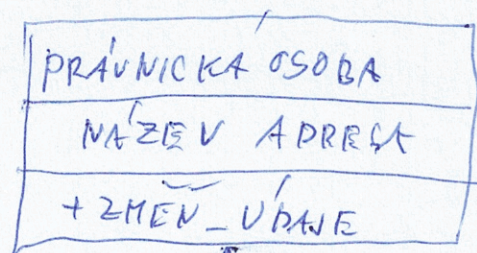 PRÁVNICKÁ OSOBA
NÁZEV ADRESA
+ZMĚŇ_ÚDAJE